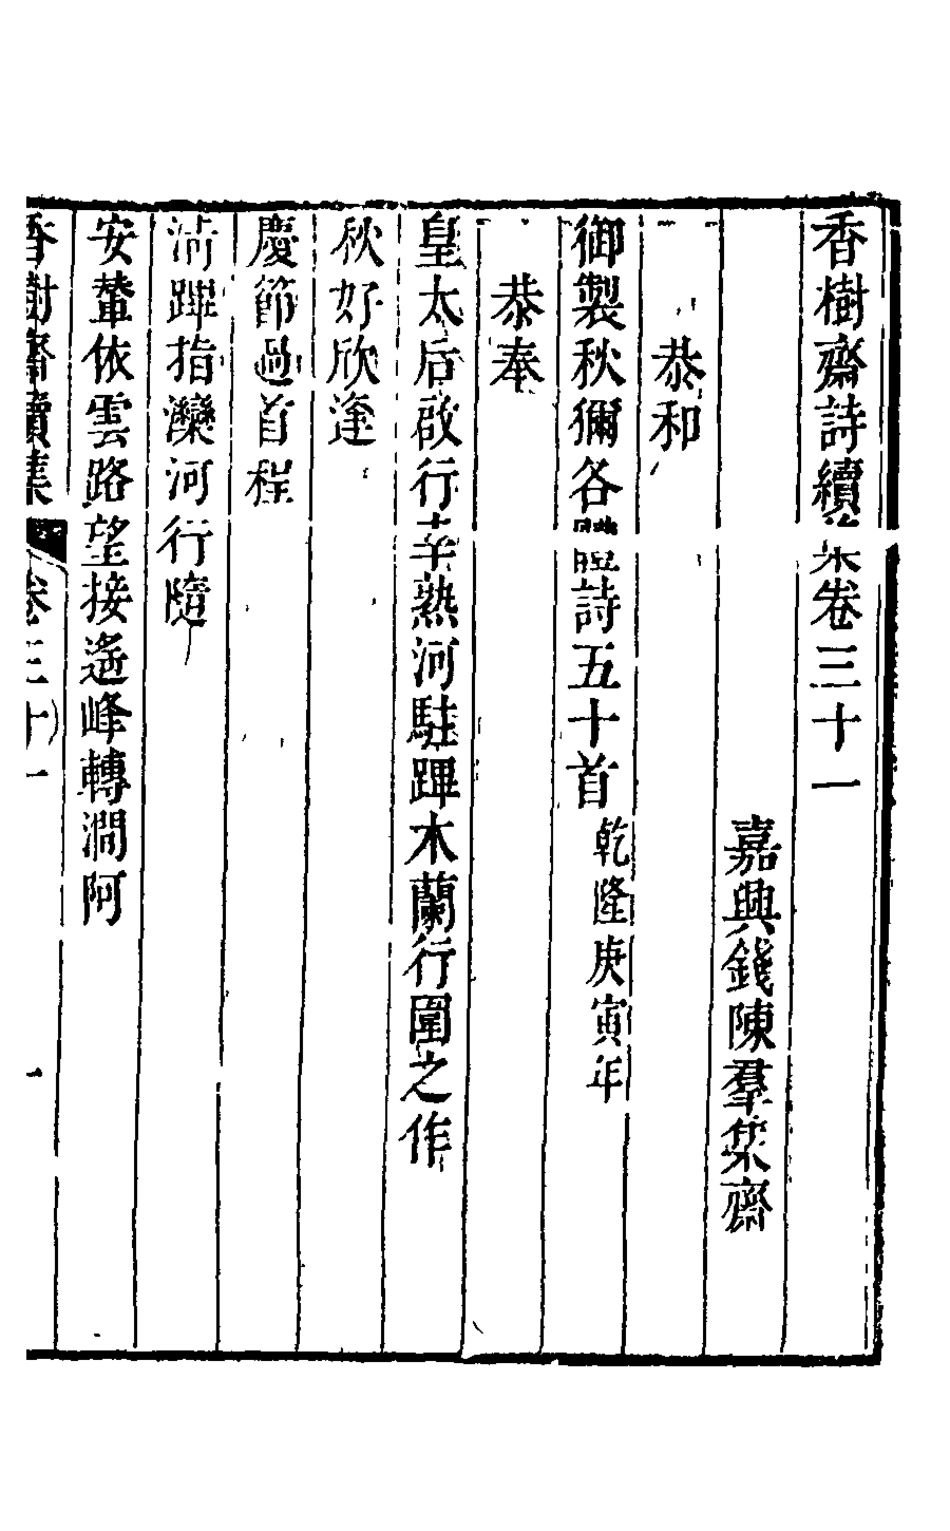 香樹齋詩續集卷三十一
嘉興錢陳羣集齋
恭和
御製秋獮各體詩五十首 乾隆庚寅年
恭奉
皇太后啟行幸熱河駐蹕木蘭行圍之作
秋好欣逢
慶節過首程
清蹕指灤河行隨
安輦依雲路望接遙峰轉澗阿
香樹齋續集 卷三十一 一